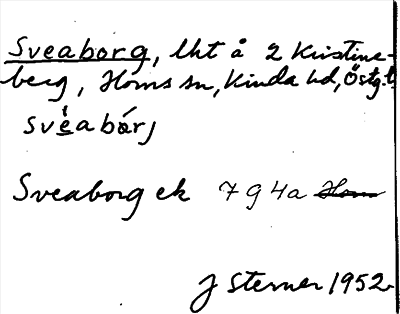 Sveaborg, lht å 2 Kristine-
berg, Horns sn, Kinda hd, Östg.l.
svéabórj
Sveaborg ek 7 9 4a Horn
J Sterner 1952.